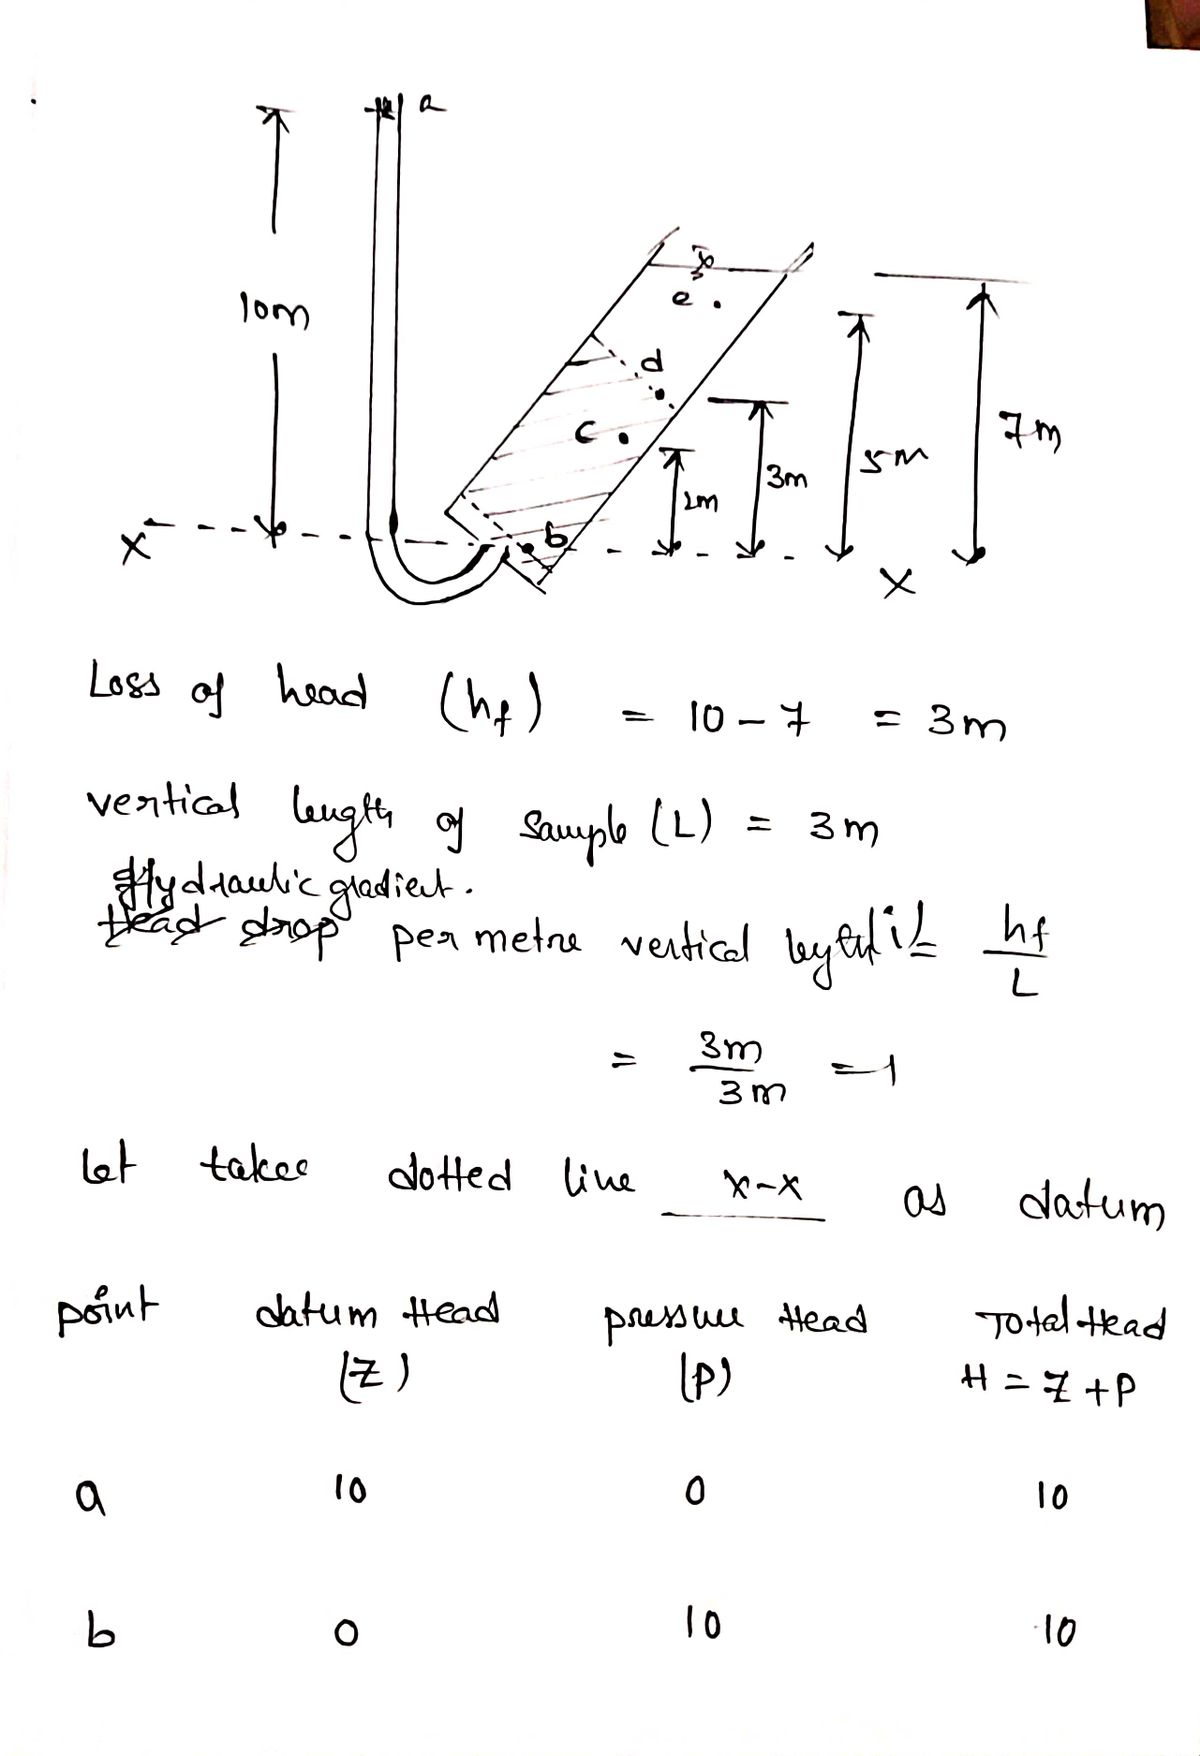 a
10m
e
d
c
7m
5m
3m
2m
b
X
X
Loss of head (hf) = 10 - 7 = 3m
vertical length of sample (L) = 3m
Hydraulic gradient.
Head drop per metre vertical i = hf/L
= 3m/3m = 1
Let takee dotted line x-x as datum
point datum Head pressure Head Total Head
(Z) (P) H = Z + P
a 10 0 10
b 0 10 10